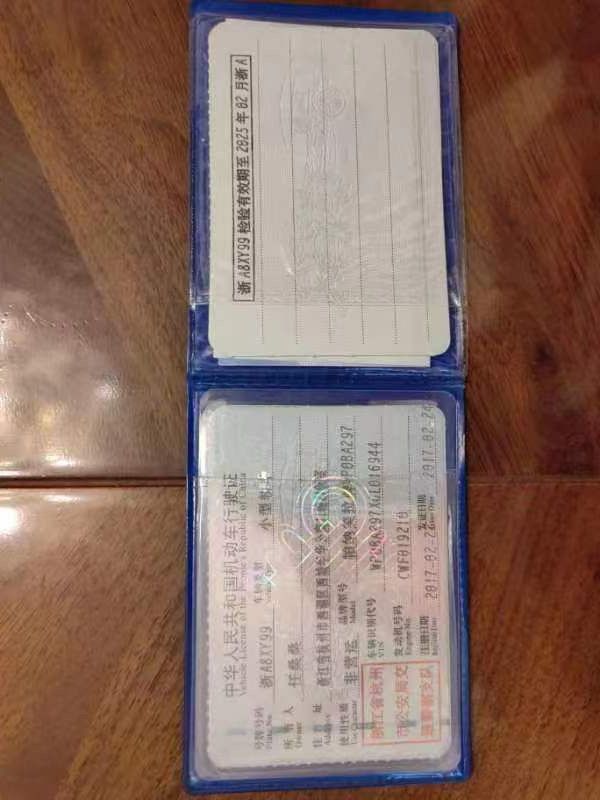 浙A8XY99 检验有效期至 2025年02月浙A
中华人民共和国机动车行驶证
Vehicle License of the People's Republic of China
号牌号码 浙A8XY99 车辆类型 小型轿车
Plate No.
所有人 任桑桑
Owner
住址 浙江省杭州市西湖区西城年华公
Address
使用性质 非营运 品牌型号 帕纳美拉 WP0BA297
Use Character Model
浙江省杭州
市公安局交
通警察支队
车辆识别代号
VIN
发动机号码 CWF019210
Engine No.
注册日期 2017-02-2 发证日期 2017-02-24
Register Date Issue Date